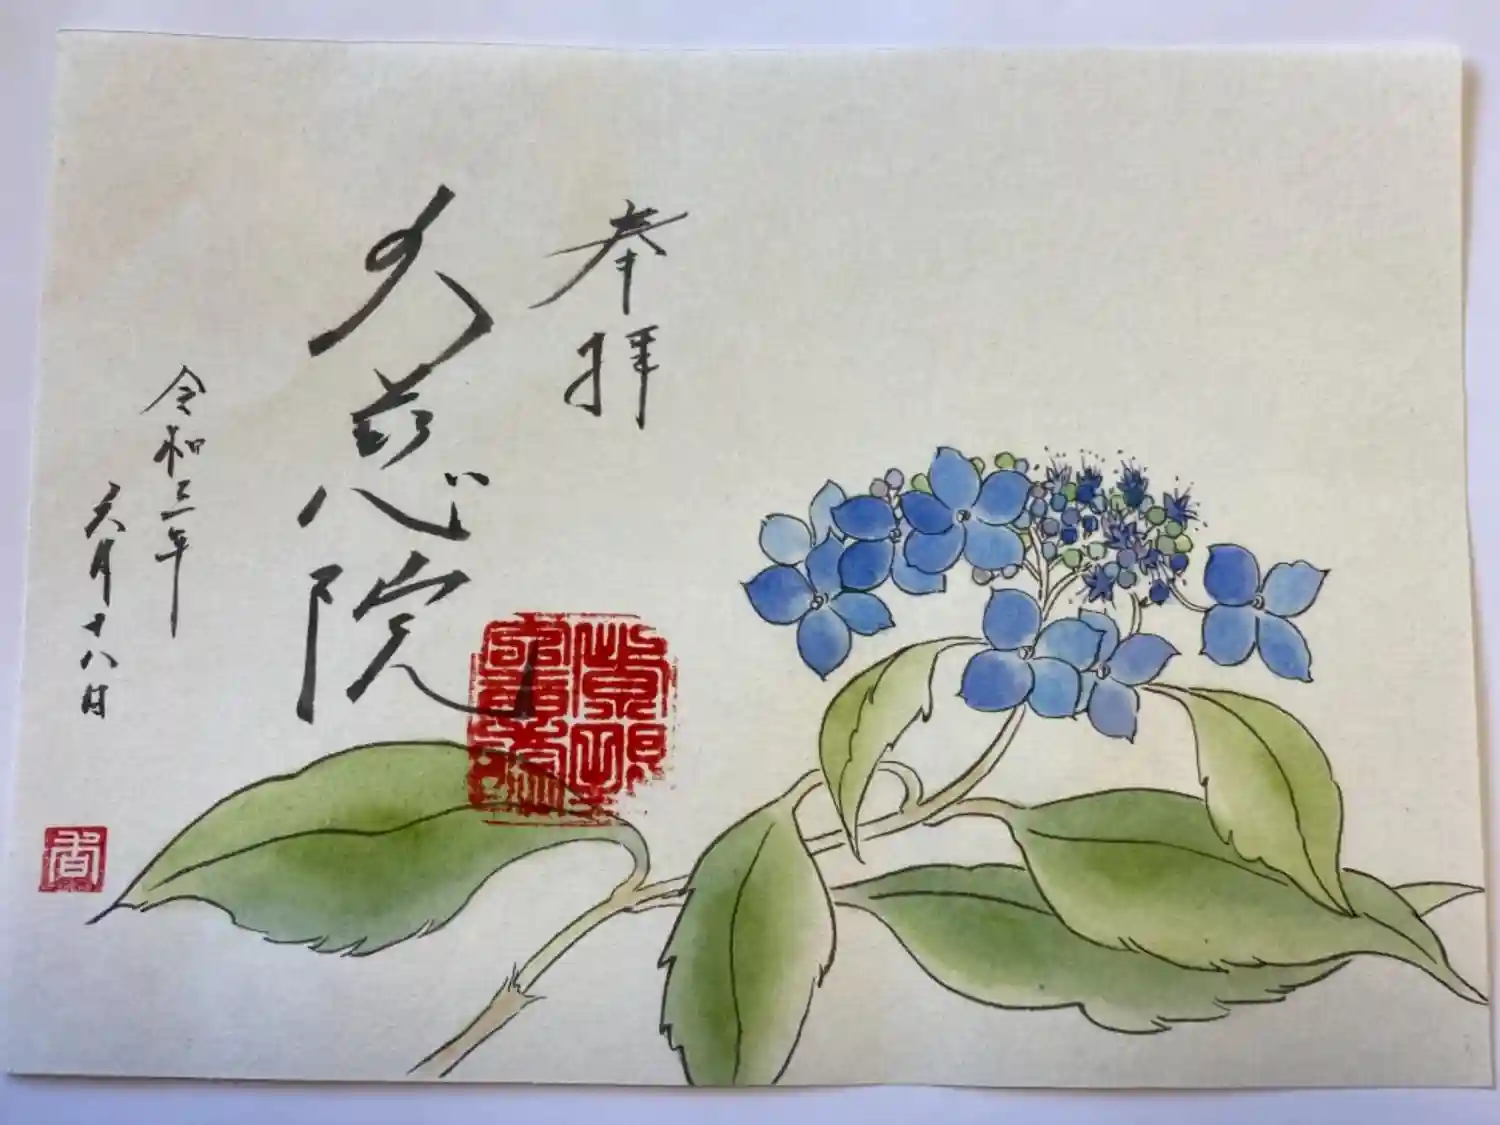 奉拝
大慈院
令和三年
六月十八日